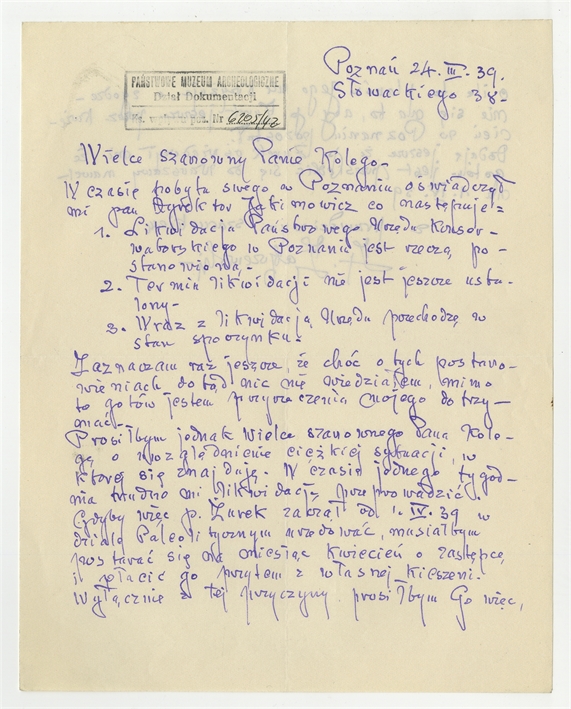 Poznań 24. III. 39.
Słowackiego 38-
PAŃSTWOWE MUZEUM ARCHEOLOGICZNE
Dział Dokumentacji
Nr 6205/42
Wielce szanowny Panie Kolego-
W czasie pobytu swego w Poznaniu oświadczył
mi pan Dyrektor Jakimowicz co następuje:
1. Likwidacja Państwowego Urzędu Konser-
watorskiego w Poznaniu jest rzeczą po-
stanowioną.-
2. Termin likwidacji nie jest jeszcze usta-
lony-
3. Wraz z likwidacją Urzędu przechodzę w
stan spoczynku-
Zaznaczam raz jeszcze, że choć o tych postano-
wieniach dotąd nic nie wiedziałem, mimo
to gotów jestem przyrzeczenia mojego dotrzy-
mać.-
Prosiłbym jednak wielce szanownego Pana Kole-
gę o uwzględnienie ciężkiej sytuacji, w
której się znajduję. W czasie jednego tygod-
nia trudno mi likwidację przeprowadzić
Gdyby więc p. Żurek zaczął od 1. IV. 39 w
dziale Paleolitycznym urzędować, musiałbym
postarać się na miesiąc kwiecień o zastępcę
i płacić go przytem z własnej kieszeni-
Wyłącznie z tej przyczyny prosiłbym Go więc,